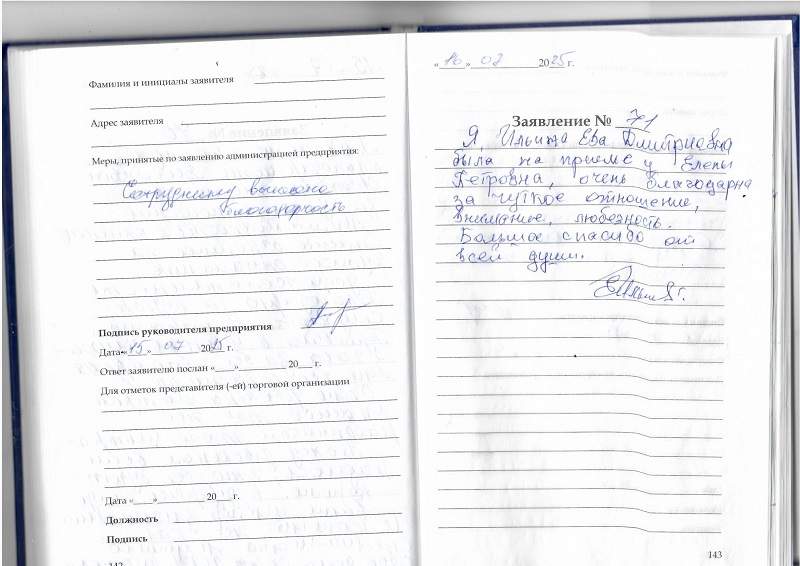 Фамилия и инициалы заявителя
Адрес заявителя
Меры, принятые по заявлению администрацией предприятия:
Сотруднику
благодарность
Подпись руководителя предприятия
Дата «15» 07 2025 г.
Ответ заявителю послан «____»__________ 20___ г.
Для отметок представителя (-ей) торговой организации
Дата «____»__________ 20___ г.
Должность
Подпись
142
«16» 07 2025 г.
Заявление № 71
Я, Ева Дмитриевна
была на приеме у Елены
Петровна, очень благодарна
за чуткое отношение,
внимание, любезность.
Большое спасибо от
всей души.
143